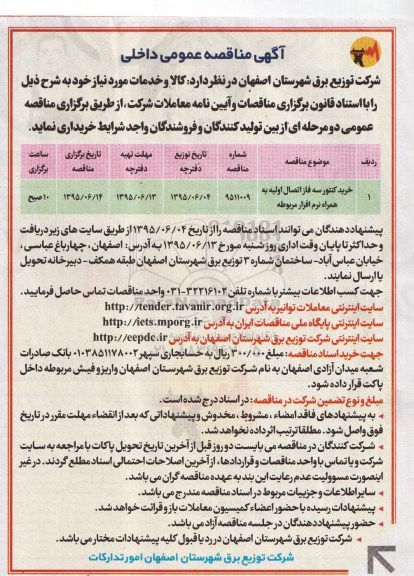 آگهی مناقصه عمومی داخلی
شرکت توزیع برق شهرستان اصفهان در نظر دارد: کالا و خدمات مورد نیاز خود به شرح ذیل
را با استناد قانون برگزاری مناقصات و آیین نامه معاملات شرکت، از طریق برگزاری مناقصه
عمومی دو مرحله ای از بین تولید کنندگان و فروشندگان واجد شرایط خریداری نماید.
ردیف موضوع مناقصه شماره مناقصه تاریخ توزیع دفترچه مهلت تهیه دفترچه تاریخ برگزاری مناقصه ساعت برگزاری
۱ خرید کنتور سه فاز اتصال اولیه به همراه نرم افزار مربوطه ۹۵۱۱۰۰۹ ۱۳۹۵/۰۶/۰۴ ۱۳۹۵/۰۶/۱۳ ۱۳۹۵/۰۶/۱۴ ۱۰ صبح
پیشنهاد دهندگان می توانند اسناد مناقصه را از تاریخ ۱۳۹۵/۰۶/۰۴ از طریق سایت های زیر دریافت
و حداکثر تا پایان وقت اداری روز شنبه مورخ ۱۳۹۵/۰۶/۱۳ به آدرس: اصفهان، چهارباغ عباسی،
خیابان عباس آباد- ساختمان شماره ۳ توزیع برق شهرستان اصفهان طبقه همکف - دبیرخانه تحویل
یا ارسال نمایند.
جهت کسب اطلاعات بیشتر با شماره تلفن ۳۲۲۱۶۱۰۲-۰۳۱ واحد مناقصات تماس حاصل فرمایید.
سایت اینترنتی معاملات توانیر به آدرس http://tender.tavanir.org.ir
سایت اینترنتی پایگاه ملی مناقصات ایران به آدرس http://iets.mporg.ir
سایت اینترنتی شرکت توزیع برق شهرستان اصفهان به آدرس http://eepdc.ir
جهت خرید اسناد مناقصه: مبلغ ۳۰۰/۰۰۰ ریال به حساب جاری سپهر ۰۱۰۳۸۵۱۱۷۸۰۰۲ بانک صادرات
شعبه میدان آزادی اصفهان به نام شرکت توزیع برق شهرستان اصفهان واریز و فیش مربوطه داخل
پاکت قرار داده شود.
مبلغ و نوع تضمین شرکت در مناقصه: در اسناد درج شده است.
- به پیشنهادهای فاقد امضاء، مشروط، مخدوش و پیشنهاداتی که بعد از انقضاء مهلت مقرر در تاریخ
فوق واصل شود. مطلقا ترتیب اثر داده نخواهد شد.
- شرکت کنندگان در مناقصه می بایست دو روز قبل از آخرین تاریخ تحویل پاکات با مراجعه به سایت
شرکت و یا تماس با واحد مناقصات و قراردادها، از آخرین اصلاحات احتمالی اسناد مطلع گردند. در غیر
اینصورت مسوولیت عدم رعایت این بند به عهده مناقصه گران می باشد.
- سایر اطلاعات و جزییات مربوط در اسناد مناقصه مندرج می باشد.
- پیشنهادات رسیده با حضور اعضاء کمیسیون معاملات باز و قرائت خواهد شد.
- حضور پیشنهاد دهندگان در جلسه مناقصه آزاد می باشد.
- شرکت توزیع برق شهرستان اصفهان در رد یا قبول کلیه پیشنهادات مختار می باشد.
شرکت توزیع برق شهرستان اصفهان امور تدارکات